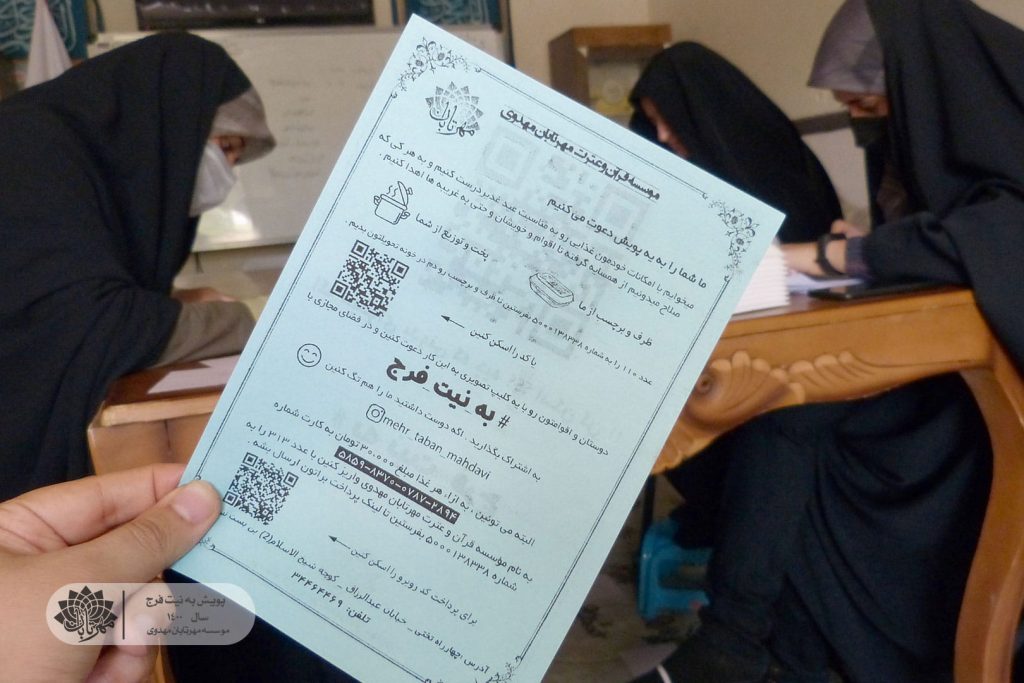 مهرتابان
موسسه قرآن و عترت مهرتابان مهدوی
ما شما را به یه پویش دعوت می کنیم
میخوایم با امکانات خودمون غذایی رو به مناسبت عید غدیر درست کنیم و به هر کی که
صلاح میدونیم از همسایه گرفته تا اقوام و خویشان و حتی به غریبه ها اهدا کنیم .
پخت و توزیع از شما
ظرف و برچسب از ما
عدد ۱۱۰ را به شماره ۵۰۰۰۱۳۸۳۳۸ بفرستین تا ظرف و برچسب رو دم در خونه تحویلتون بدیم .
یا کد را اسکن کنین
دوستان و اقوامتون رو با یه کلیپ تصویری به این کار دعوت کنین و در فضای مجازی با
# به نیت فرج
به اشتراک بگذارید . اگه دوست داشتید ما را هم تگ کنین
mehr_taban_mahdavi
البته می تونین ، به ازاء هر غذا مبلغ ۳۰.۰۰۰ تومان به کارت شماره
۵۸۵۹-۸۳۷۰-۰۷۸۷-۲۸۹۴
به نام موسسه قرآن و عترت مهرتابان مهدوی واریز کنین یا عدد ۳۱۳ را به
شماره ۵۰۰۰۱۳۸۳۳۸ بفرستین تا لینک پرداخت براتون ارسال بشه .
برای پرداخت کد روبرو را اسکن کنین
آدرس :چهارراه تختی _ خیابان عبدالرزاق _ کوچه شیخ الاسلام(2) بن بست
تلفن: ۳۴۴۶۴۴۶۹
مهرتابان
پویش به نیت فرج
سال ۱۴۰۰
موسسه مهرتابان مهدوی